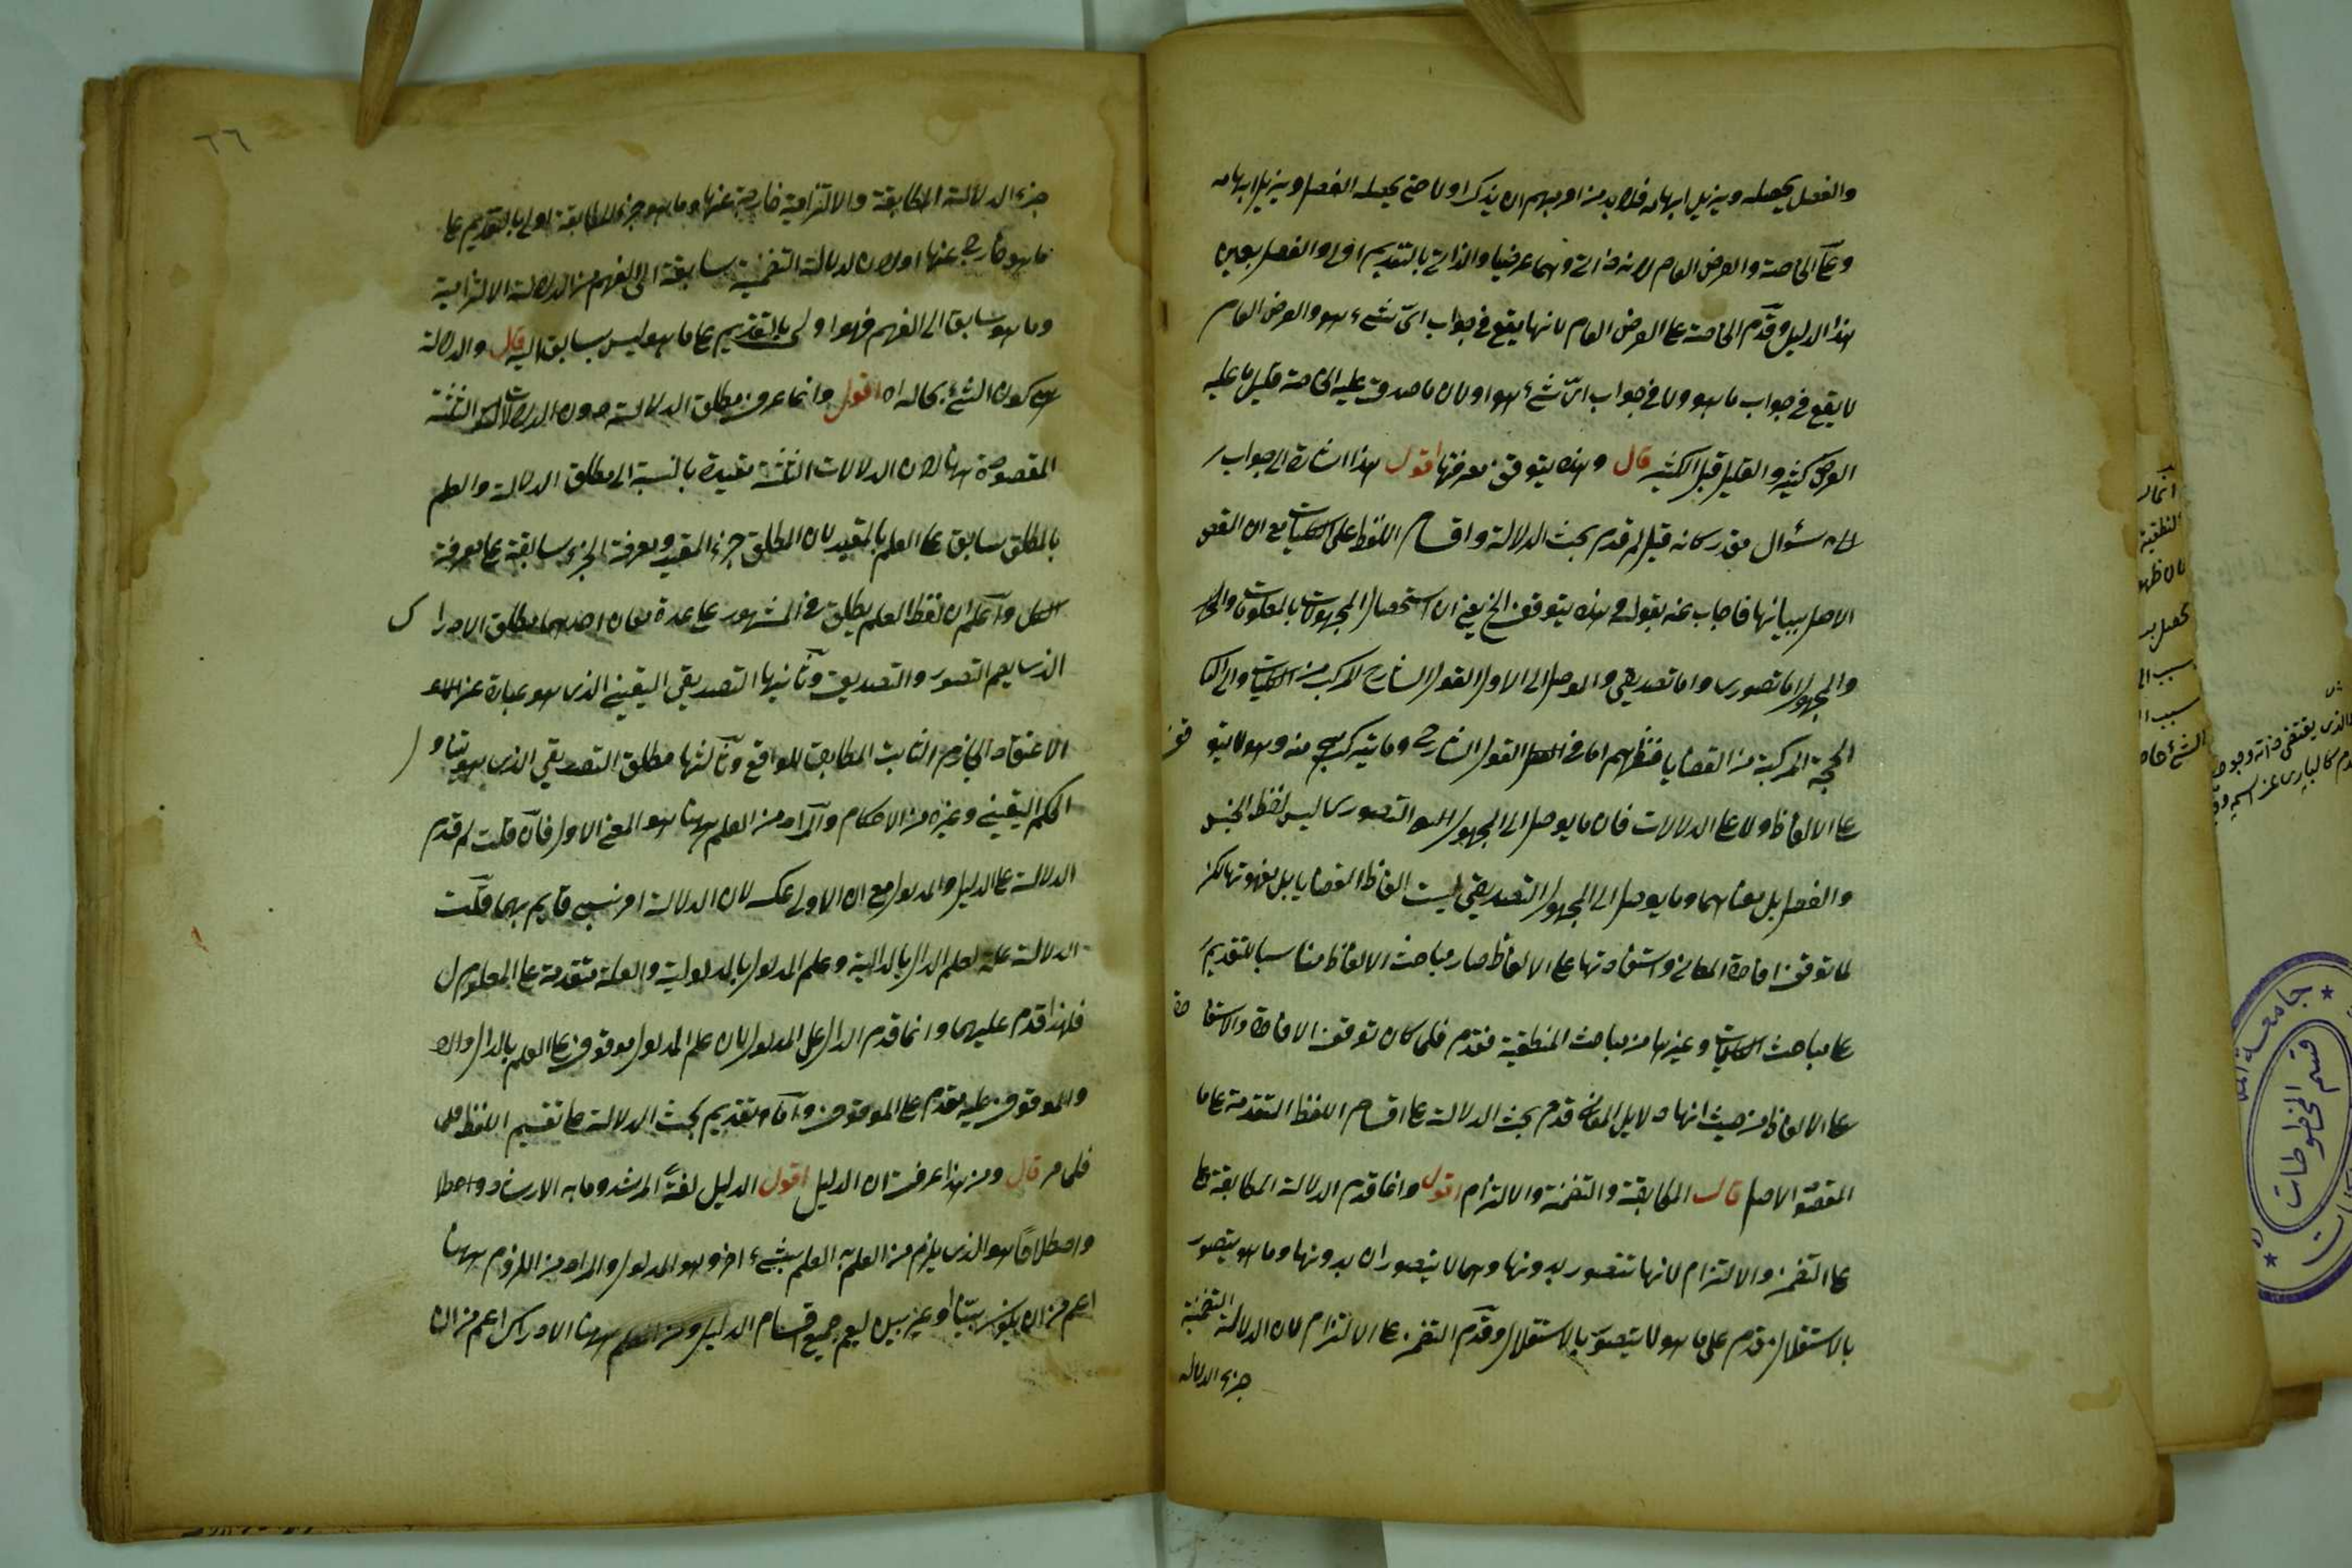 والفصل يحصله ويزيل ابهامه فلابد من امر مبهم ان يذكر اولا حتى يحصله الفصل ويزيل ابهامه
وعلى الخاصة والعرض العام لانه ذاتى وهما عرضيا والذاتى بالتقديم اولى والفصل بعين
هذا الدليل وقدم الخاصة على العرض العام لانها يقع فى جواب اىّ شىء هو والعرض العام
لا يقع فى جواب ما هو ولا فى جواب اىّ شىء هو او لان ما صدق عليه الخاصة قليل ما عليه
العرض كثير والقليل قبل الكثير قال وهذه يتوقف معرفتها اقول هذا اشارة الى جواب
سئوال مقدر كانه قيل لم قدم بحث الدلالة واقسام اللفظ على الكليات مع ان الغرض
الاصل بيانها فاجاب عنه بقوله وهذه يتوقف الخ يعنى ان استحصال المجهولات بالمعلومات
والمجهول اما تصورى واما تصديقى والموصل الى الاول القول الشارح المركب من الكليات والى
الحجة المركبة من القضايا فنظرهم اما فى القول الشارح وما يتركب منه وهو لا يتوقف
على الالفاظ ولا على الدلالات فان ما يوصل الى المجهول التصورى ليس لفظ الجنس
والفصل بل معناهما وما يوصل الى المجهول التصديقى ليست الفاظ القضايا بل مفهوماتها لكن
لما توقف افادة المعانى واستفادتها على الالفاظ صار مباحث الالفاظ مناسبا للتقديم
على مباحث الكليات وغيرها من مباحث المنطقية فقدم فلما كان توقف الافادة والاستفادة
على الالفاظ من حيث انها دلايل المعانى قدم بحث الدلالة على اقسام اللفظ المتقدمة على ما
المقصو الاصل قال المطابقة والتضمنة والالتزام اقول وانما قدم الدلالة المطابقة على
على التضمن والالتزام لانها تتصور بدونها وهما لا يتصوران بدونها وما هو يتصور
بالاستقلال مقدم على ما هو لا يتصوّر بالاستقلال وقدّم التضمن على الالتزام لان الدلالة التضمنية
جزء الدلالة
٦٦
جزء الدلالة المطابقة والالتزامية خارجة عنها وما هو جزء المطابقة اولى بالتقديم على
ما هو خارج عنها او لان الدلالة التضمنية سابقة الى الفهم من الدلالة الالتزامية
وما هو سابق الى الفهم فهو اولى بالتقديم على ما هو ليس بسابق اليه قال والدلالة
هى كون الشىء بحاله اه اقول وانما عرف مطلق الدلالة دون الدلالات الثلثة
المقصودة ههنا لان الدلالات الثلثة مقيدة بالنسبة الى مطلق الدلالة والعلم
بالمطلق سابق على العلم بالمقيد لان المطلق جزء المقيد ومعرفة الجزء سابقة على معرفة
الكل واعلم ان لفظ العلم يطلق فى المشهور على عدة معان احدهما مطلق الادراك
الذى يعم التصور والتصديق وثانيها التصديقى اليقينى الذى هو عبارة عن
الاعتقاد الجازم الثابت المطابق للواقع وثالثها مطلق التصديقى الذى هو يتناول
الحكم اليقينى وغيره من الاحكام والمراد من العلم ههنا هو المعنى الاول فان قلت لم قدم
الدلالة على الدليل والمدلول مع ان الاولى عكسه لان الدلالة امر نسبى قايم بهما قلت
الدلالة علة لعلم الدال بالدالية وعلم المدلول بالمدلولية والعلة متقدمة على المعلول
فلهذا قدم عليهما وانما قدم الدال على المدلول لان علم المدلول موقوف على العلم بالدال
والموقوف عليه مقدم على الموقوف واما تقديم بحث الدلالة على تقسيم اللفظ
فلما مر قال ومن هذا عرفت ان الدليل اقول الدليل لغةً المرشد وما به الارشاد واصطلا
واصطلاحًا هو الذى يلزم من العلم به العلم بشىء اخر وهو المدلول والمراد من اللزوم ههنا
اعم من ان يكون بيّنا او غير بين ليعم جميع اقسام الدليل ومن العلم ههنا الادراك اعم من ان
قسم المخطوطات